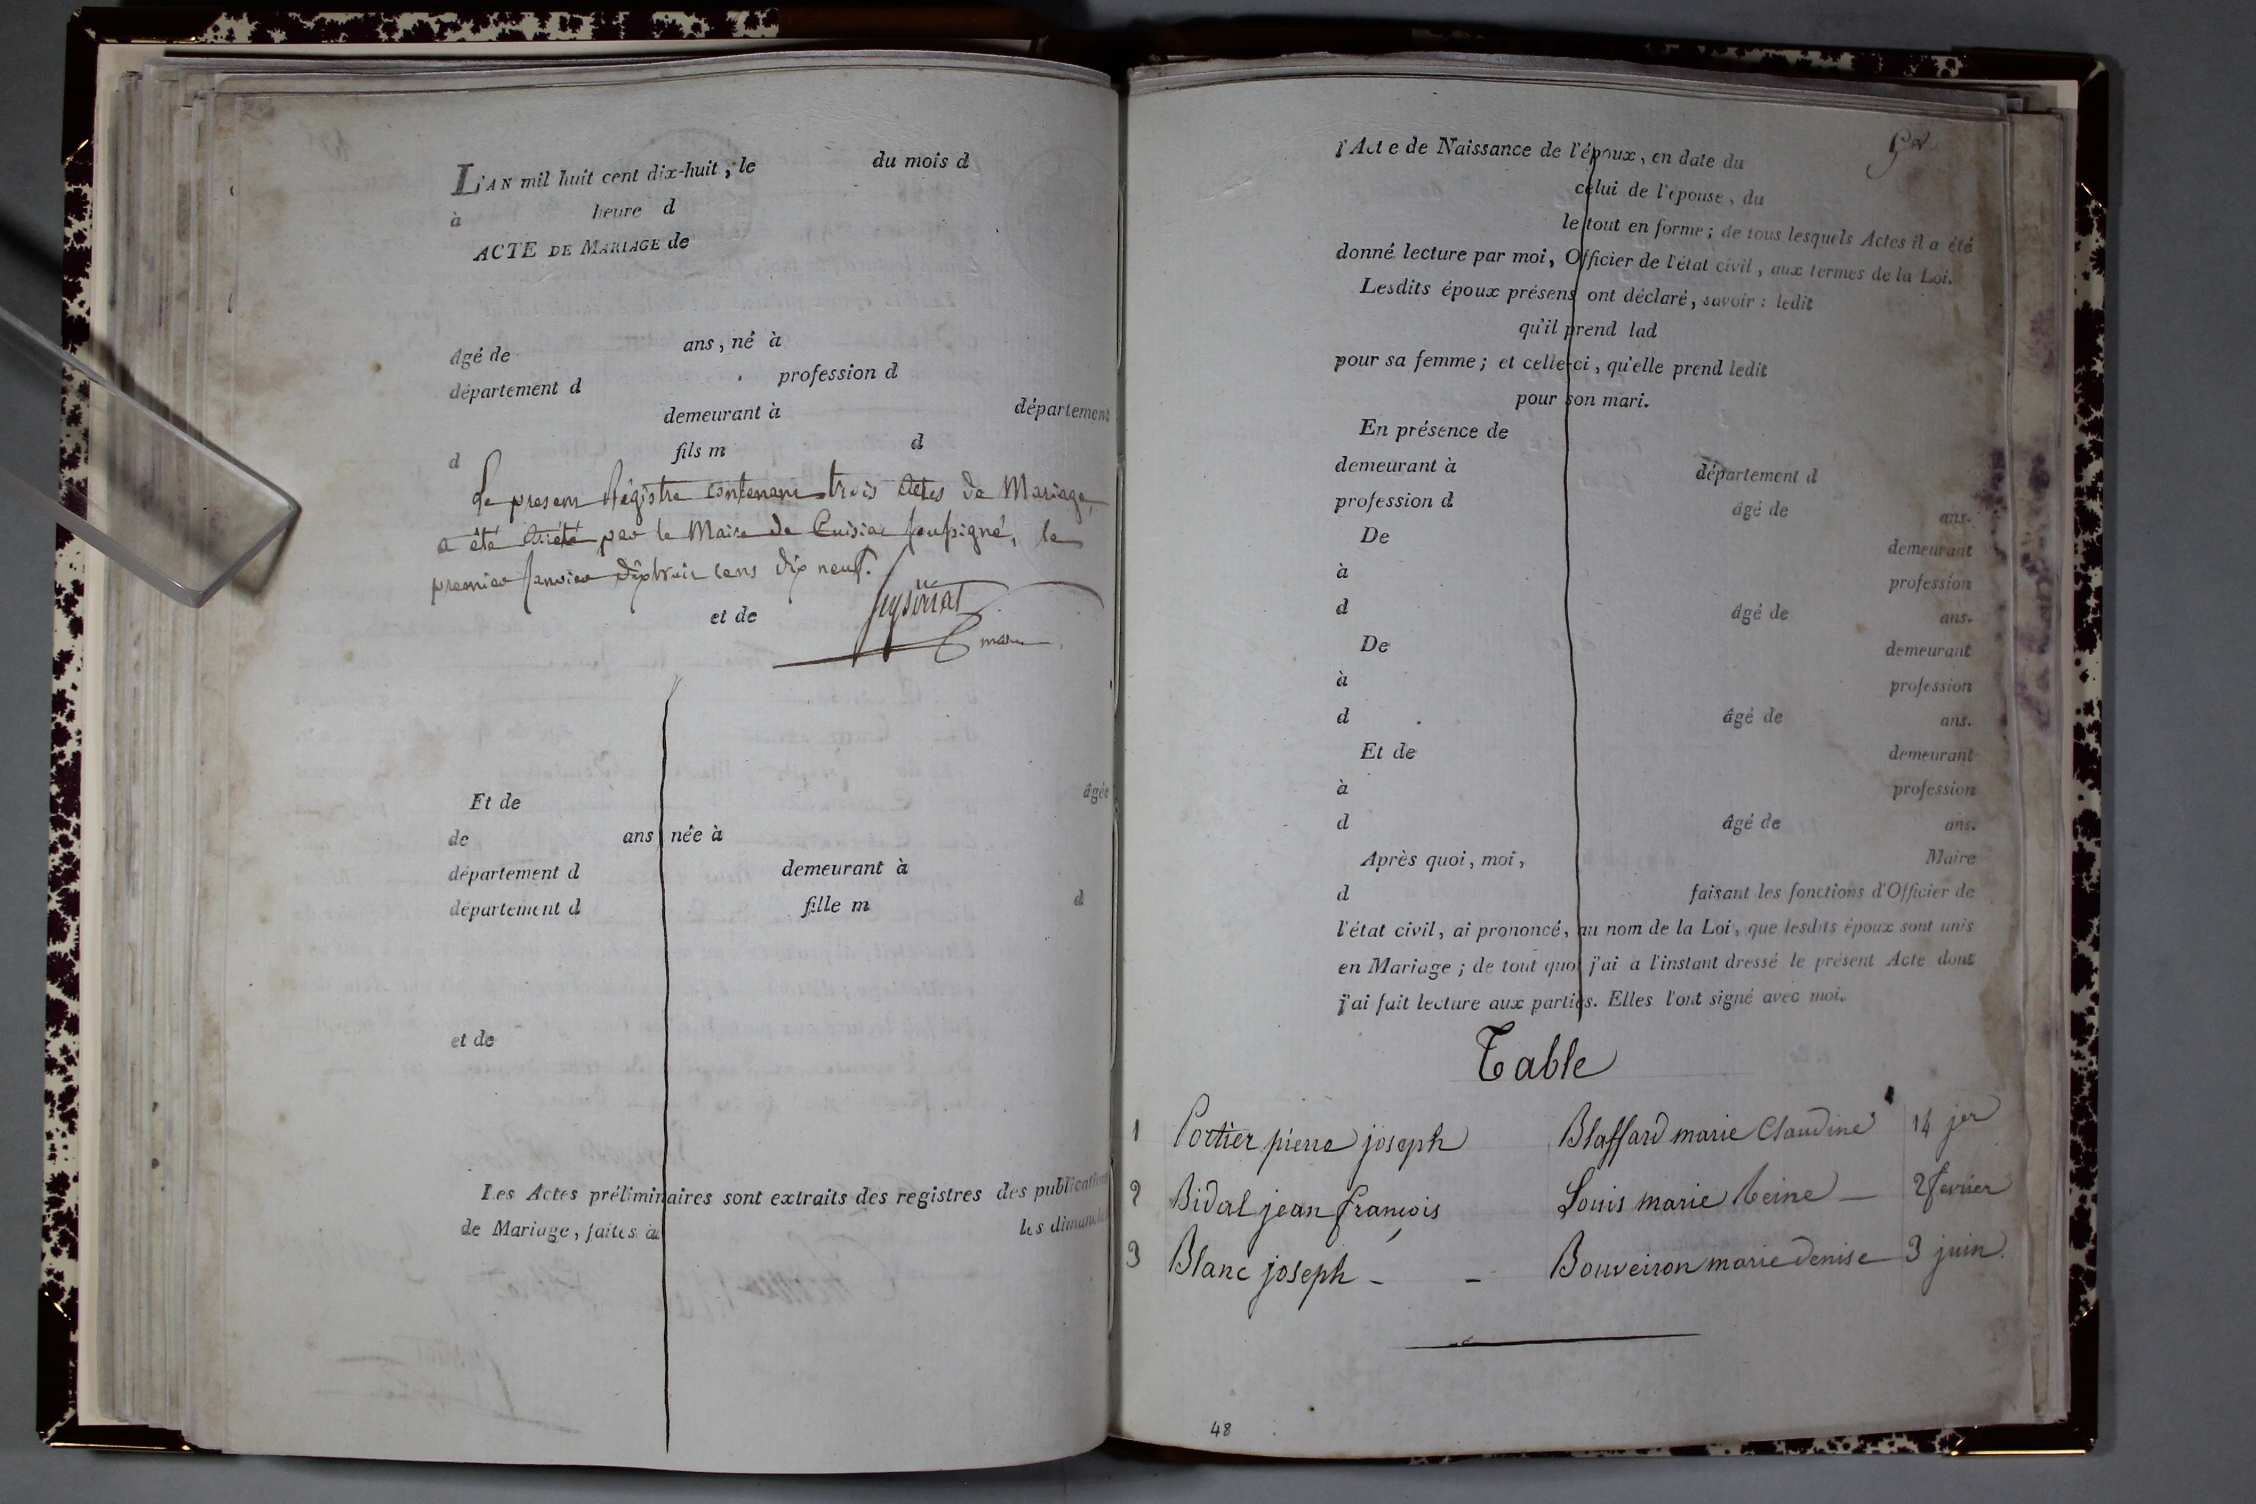 L'AN mil huit cent dix-huit, le du mois d
à heure d
ACTE DE MARIAGE de
âgé de ans, né à
département d profession d
demeurant à département
d fils m d
Le present Régistre contenant trois Actes de Mariage,
a été arrêté par le Maire de Cuisia soussigné, le
premier Janvier dixhuit cens dix neuf.
et de
maire
Et de âgée
de ans née à
département d demeurant à
département d fille m d
et de
Les Actes préliminaires sont extraits des registres des publications
de Mariage, faites au les dimanches
l'Acte de Naissance de l'époux, en date du
celui de l'épouse, du
le tout en forme; de tous lesquels Actes il a été
donné lecture par moi, Officier de l'état civil, aux termes de la Loi.
Lesdits époux présens ont déclaré, savoir: ledit
qu'il prend lad
pour sa femme; et celle-ci, qu'elle prend ledit
pour son mari.
En présence de
demeurant à département d
profession d âgé de ans.
De demeurant
à profession
d âgé de ans.
De demeurant
à profession
d âgé de ans.
Et de demeurant
à profession
d âgé de ans.
Après quoi, moi, Maire
d faisant les fonctions d'Officier de
l'état civil, ai prononcé, au nom de la Loi, que lesdits époux sont unis
en Mariage; de tout quoi j'ai a l'instant dressé le présent Acte dont
j'ai fait lecture aux parties. Elles l'ont signé avec moi.
Table
1 Portier pierre joseph Blaffard marie Claudine 14 jer
2 Bidal jean françois Louis marie Reine 2 fevrier
3 Blanc joseph - - Bouveiron marie denise 3 juin
48